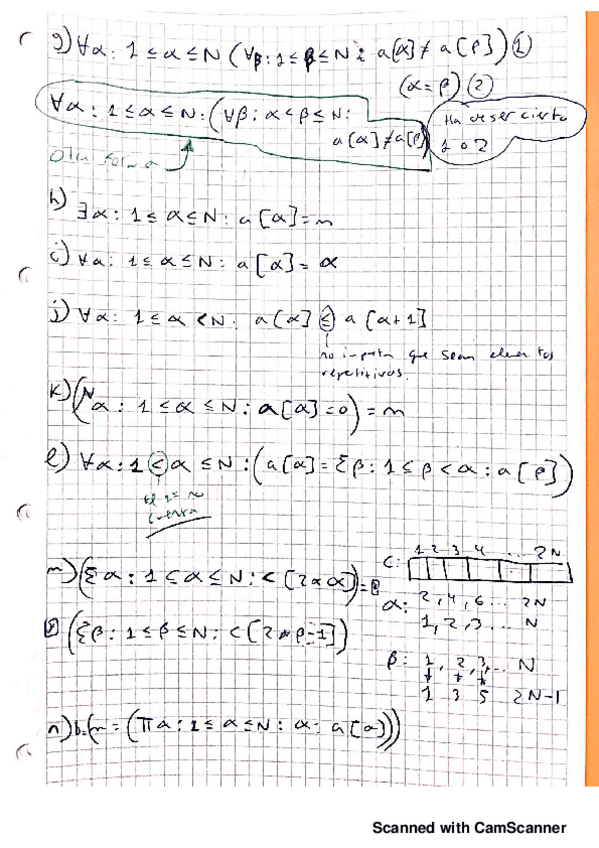 g) ∀α: 1 ≤ α ≤ N (∀β: 1 ≤ β ≤ N: a[α] ≠ a[β]) ①
(α = β) ②
∀α: 1 ≤ α ≤ N: (∀β: α < β ≤ N:
a[α] ≠ a[β])
Ha de ser cierto
1 o 2
Otra forma
h) ∃α: 1 ≤ α ≤ N: a[α] = m
i) ∀α: 1 ≤ α ≤ N: a[α] = α
j) ∀α: 1 ≤ α < N: a[α] ≤ a[α+1]
no importa que sean elementos
repetitivos.
k) (N α: 1 ≤ α ≤ N: a[α] = 0) = m
l) ∀α: 1 < α ≤ N: (a[α] = Σβ: 1 ≤ β < α: a[β])
el 1º no
cuenta
m) (Σα: 1 ≤ α ≤ N: c[2*α]) =
(Σβ: 1 ≤ β ≤ N: c[2*β-1])
1 2 3 4 ... 2N
c:
α: 2, 4, 6 ... 2N
1, 2, 3 ... N
β: 1, 2, 3, ... N
1 3 5 2N-1
n) b = (m = (πα: 1 ≤ α ≤ N: α: a[α]))
Scanned with CamScanner